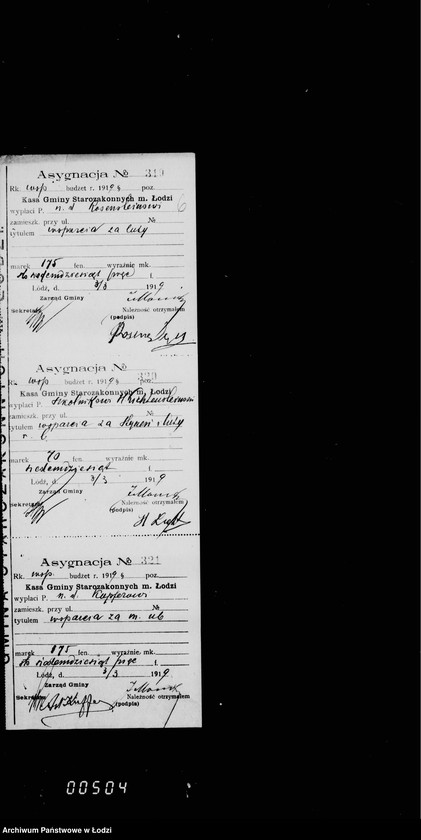 Asygnacja № 319
Rk. wsp. budżet r. 1919 § poz.
Kasa Gminy Starozakonnych m. Łodzi
wypłaci P. n. d. Rosensteinowi
zamieszk. przy ul. №
tytułem wsparcia za luty
marek 175 fen. wyraźnie mk.
sto siedemdziesiąt pięć f.
Łódź, d. 3/3 1919
Zarząd Gminy
Sekretarz Należność otrzymałem
(podpis)
Asygnacja № 320
Rk. wsp. budżet r. 1919 § poz.
Kasa Gminy Starozakonnych m. Łodzi
wypłaci P. Szkolnikowi
zamieszk. przy ul. №
tytułem wsparcia za styczeń i luty
r. b.
marek 70 fen. wyraźnie mk.
siedemdziesiąt f.
Łódź, d. 3/3 1919
Zarząd Gminy
Sekretarz Należność otrzymałem
(podpis)
Asygnacja № 321
Rk. wsp. budżet r. 1919 § poz.
Kasa Gminy Starozakonnych m. Łodzi
wypłaci P. n. d. Kupferowi
zamieszk. przy ul. №
tytułem wsparcia za m. ub
marek 175 fen. wyraźnie mk.
sto siedemdziesiąt pięć f.
Łódź, d. 3/3 1919
Zarząd Gminy
Sekretarz Należność otrzymałem
(podpis)
00504
Archiwum Państwowe w Łodzi